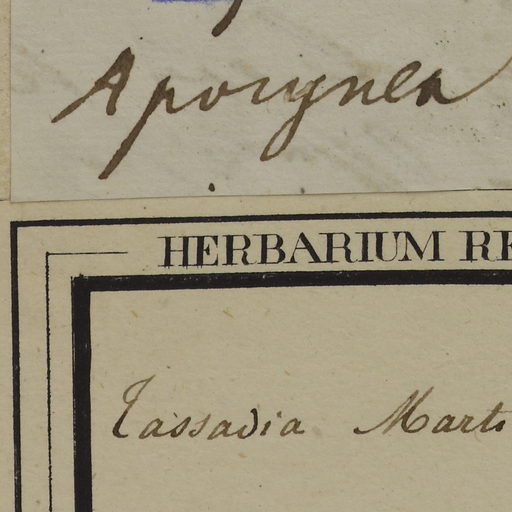 Apocynea
HERBARIUM RE
Tassadia Marti